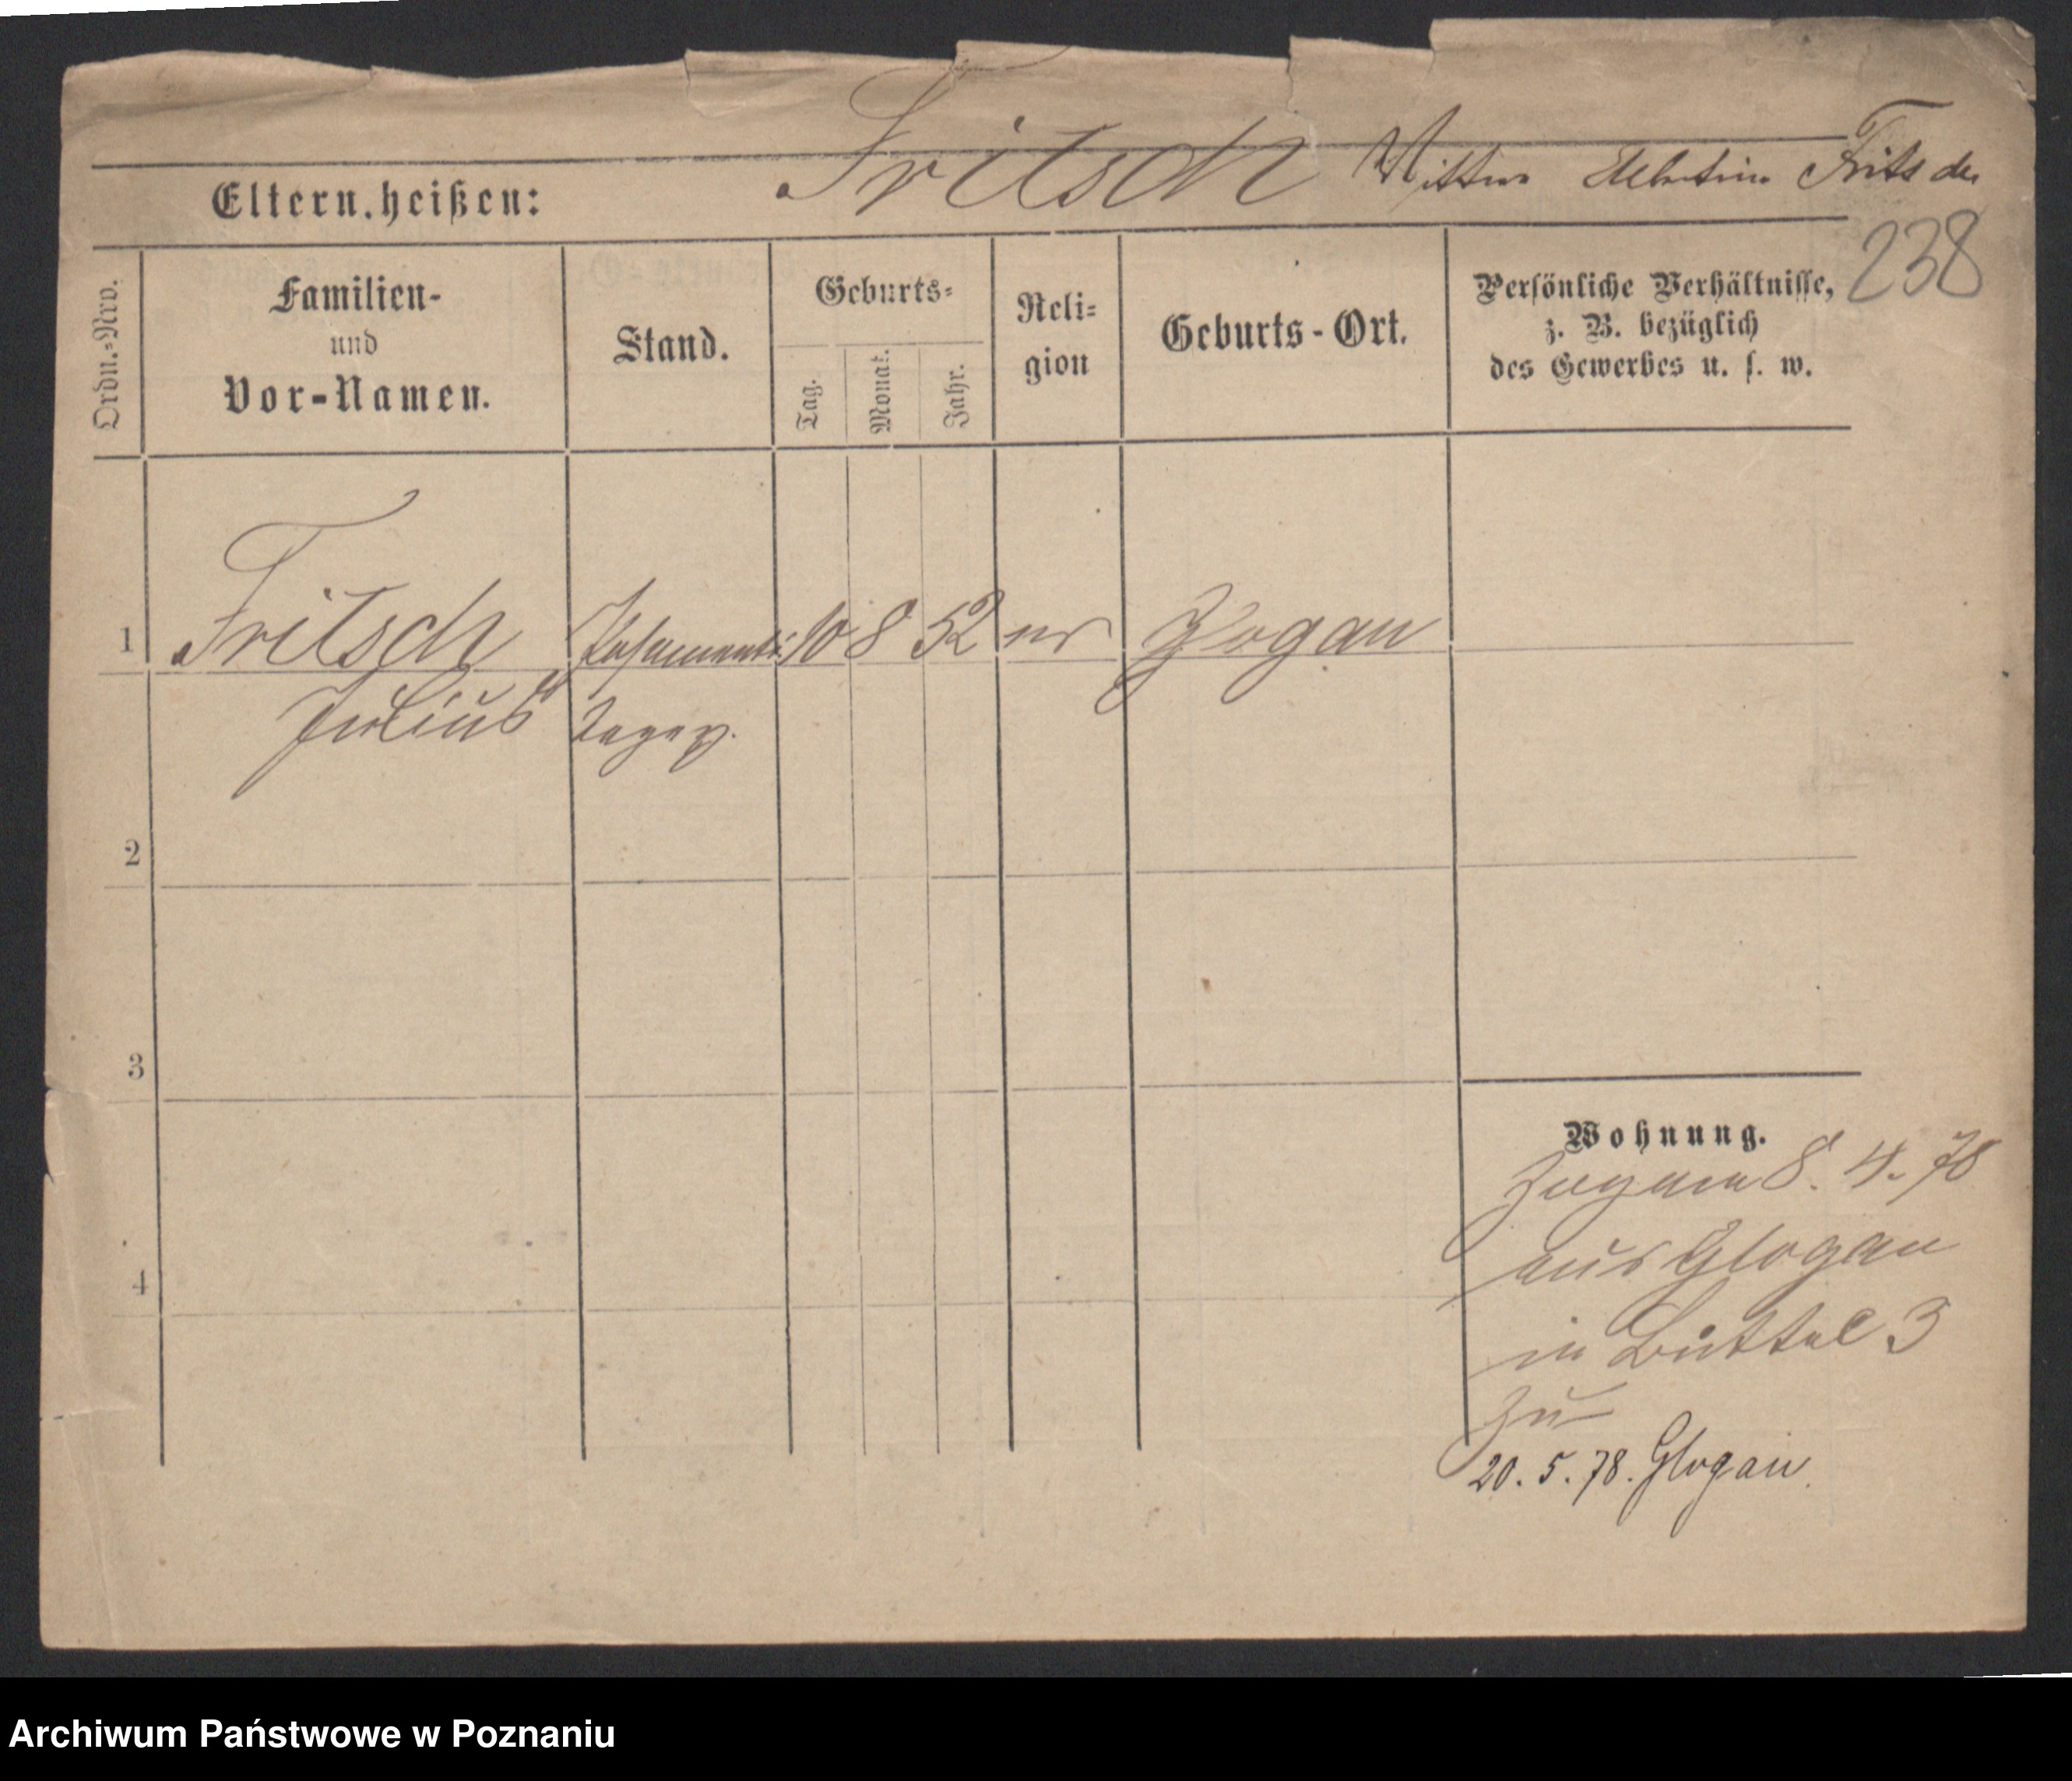 Fritsch
Eltern heißen:
238
Ordn.=Nro.
Familien-
und
Vor-Namen.
Stand.
Geburts=
Tag.
Monat.
Jahr.
Reli=
gion
Geburts-Ort.
Persönliche Verhältnisse,
z. B. bezüglich
des Gewerbes u. s. w.
1
Fritsch
10 8 52
Glogau
Julius
2
3
4
Wohnung.
8. 4. 78
aus Glogau
in Büttel 3
zu
20. 5. 78. Glogau
Archiwum Państwowe w Poznaniu